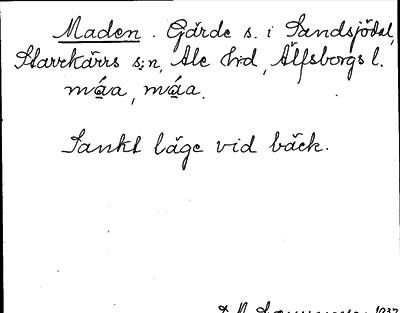 Maden. Gärde s. i Sandsjödal,
Starrkärrs s:n, Ale hd, Älfsborgs l.
måa, måa.
Sankt läge vid bäck.